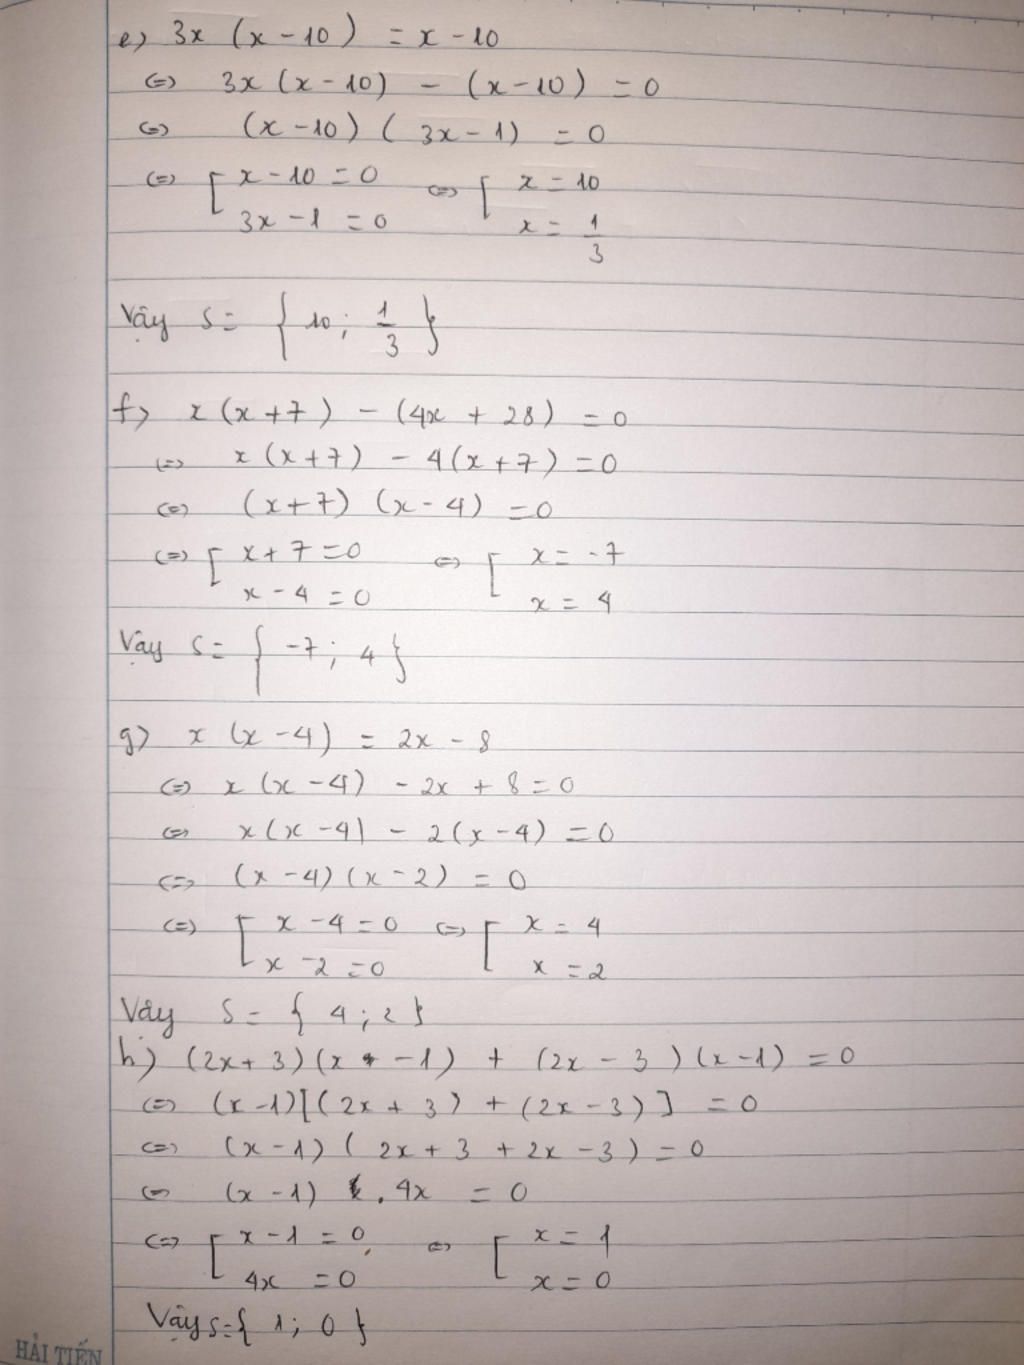 e) 3x (x - 10) = x - 10
<=> 3x (x - 10) - (x - 10) = 0
<=> (x - 10) ( 3x - 1) = 0
<=> [ x - 10 = 0 <=> [ x = 10
3x - 1 = 0 x = 1/3
Vậy S = { 10 ; 1/3 }
f) x (x + 7) - (4x + 28) = 0
<=> x (x + 7) - 4(x + 7) = 0
<=> (x + 7) (x - 4) = 0
<=> [ x + 7 = 0 <=> [ x = -7
x - 4 = 0 x = 4
Vậy S = { -7 ; 4 }
g) x (x - 4) = 2x - 8
<=> x (x - 4) - 2x + 8 = 0
<=> x (x - 4) - 2(x - 4) = 0
<=> (x - 4) (x - 2) = 0
<=> [ x - 4 = 0 <=> [ x = 4
x - 2 = 0 x = 2
Vậy S = { 4 ; 2 }
h) (2x + 3) (x - 1) + (2x - 3) (x - 1) = 0
<=> (x - 1) [(2x + 3) + (2x - 3)] = 0
<=> (x - 1) ( 2x + 3 + 2x - 3) = 0
<=> (x - 1) . 4x = 0
<=> [ x - 1 = 0 <=> [ x = 1
4x = 0 x = 0
Vậy S = { 1 ; 0 }
HẢI TIẾN